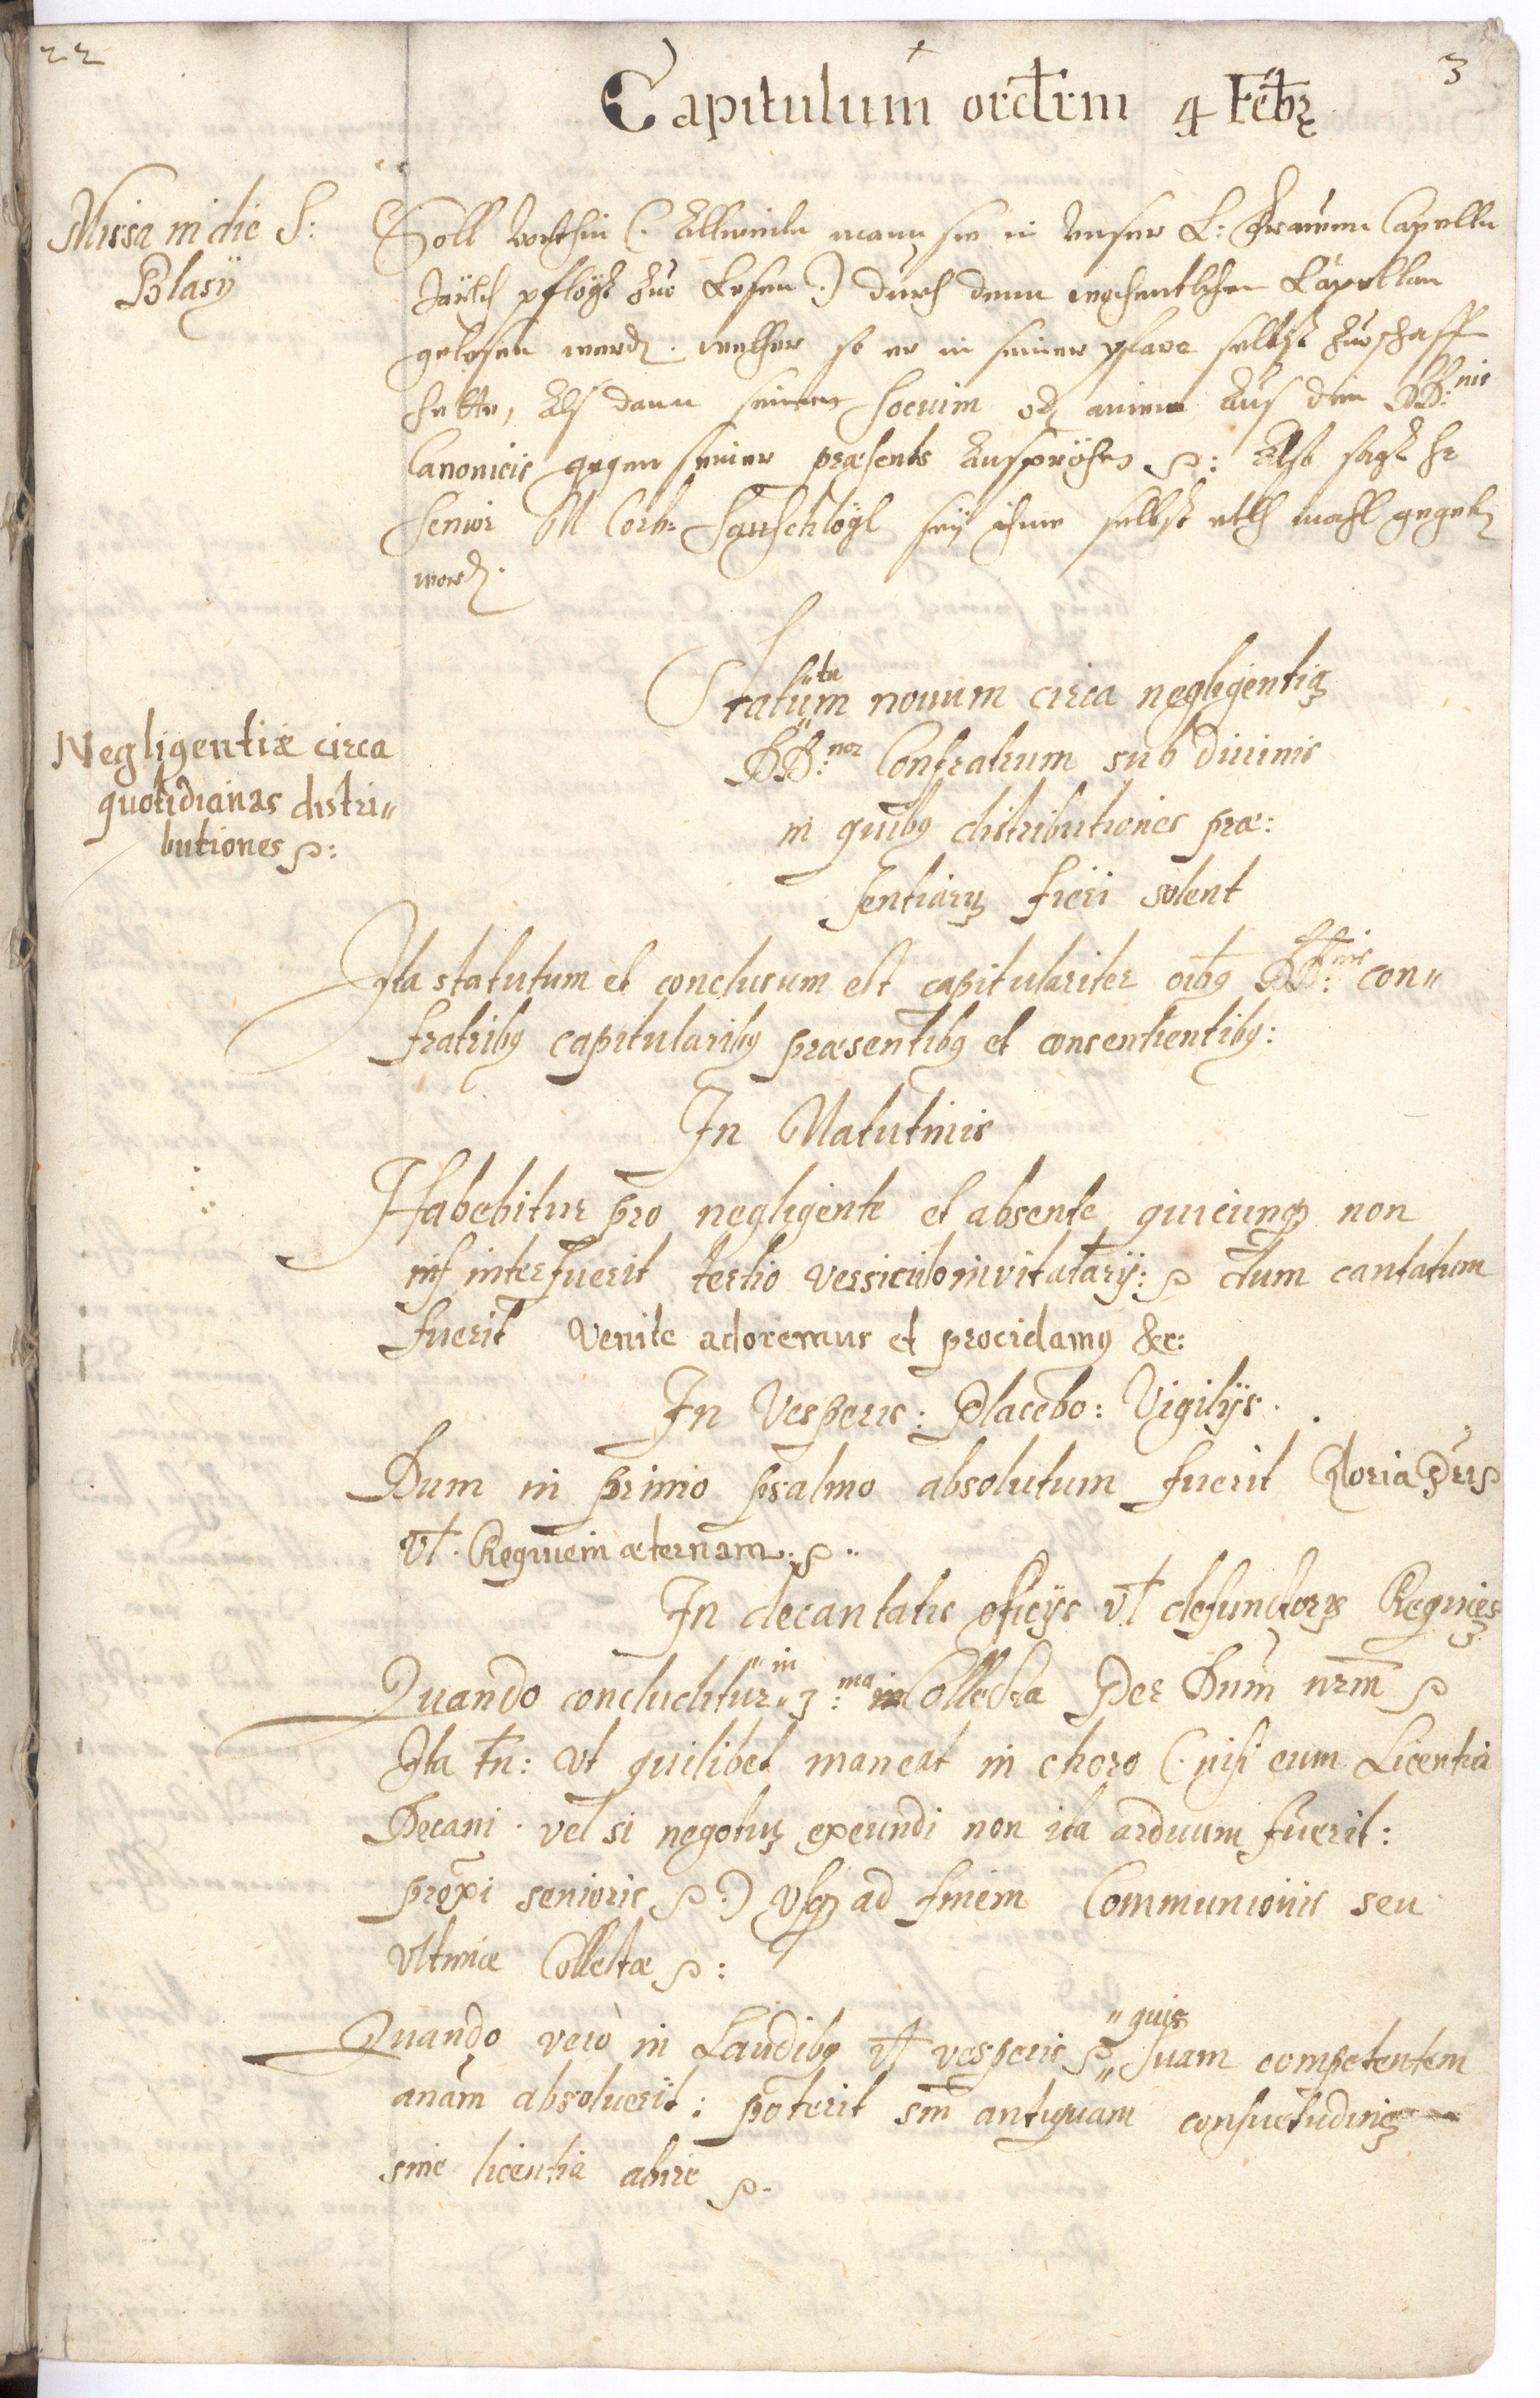 22
3
Capitulum ordrm 4 Febrȩ
Missa in die S:
Blasÿ
Soll vorthin (. Allweiln mann sie in Unser L: Frauen Capelln
Järlich pflögt zue Lesen .) durch denn wochentlichen Capellan
gelesen werdn. welcher so er in seiner pfarr selbst zuschaff
hette, Alß dann seinen Socium od einen Auß den DD:nis
Canonicis gegen seiner præsents Ansprächen ℘: Also sagt hr
Senior M Corb: Hauschlögl seÿ ihme selbst etlh mahl gegebn
wordn.
Negligentiæ circa
quotidianas distri„
butiones ℘:
Statu„ta„m nouum circa negligentią
DD:nor Confratrum sub diuinis
in quibꝰ distributiones præ:
sentiarų fieri solent
Ita statutum et conclusum est capitulariter oibꝰ DD:nis con„
fratribꝰ capitularibꝰ præsentibꝰ et consentientibꝰ:
In Matutinis
Habebitur pro negligente et absente quicunqꝫ non
interfuerit tertio versiculo invitatarÿ: ℘ dum cantatum
fuerit Venite adoremus et procidamꝰ &c:
In Vesperis: Placebo: Vigilÿs.
Dum in primo psalmo absolutum fuerit Gloria Pri ℘
Vł. Requiem æternam: ℘..
In decantatis oficÿs vł defunctorų Requięs
Quando concluditur „in„ 3:ma Collecta Per Dnum nrm ℘
Ita tn: Vt quilibet maneat in choro (. nisi cum Licentia
Decani. vel si negotių exeundi non ita arduum fuerit:
proxi senioris ℘.) Vsqꝫ ad finem Communionis seu
Vltimæ Collectæ ℘:
Quando verò in Laudibꝰ vł vesperis ℘ „quis„ suam competentem
anam absoluerit: poterit sm antiquam consuetudinę
sine licentia abire ℘.